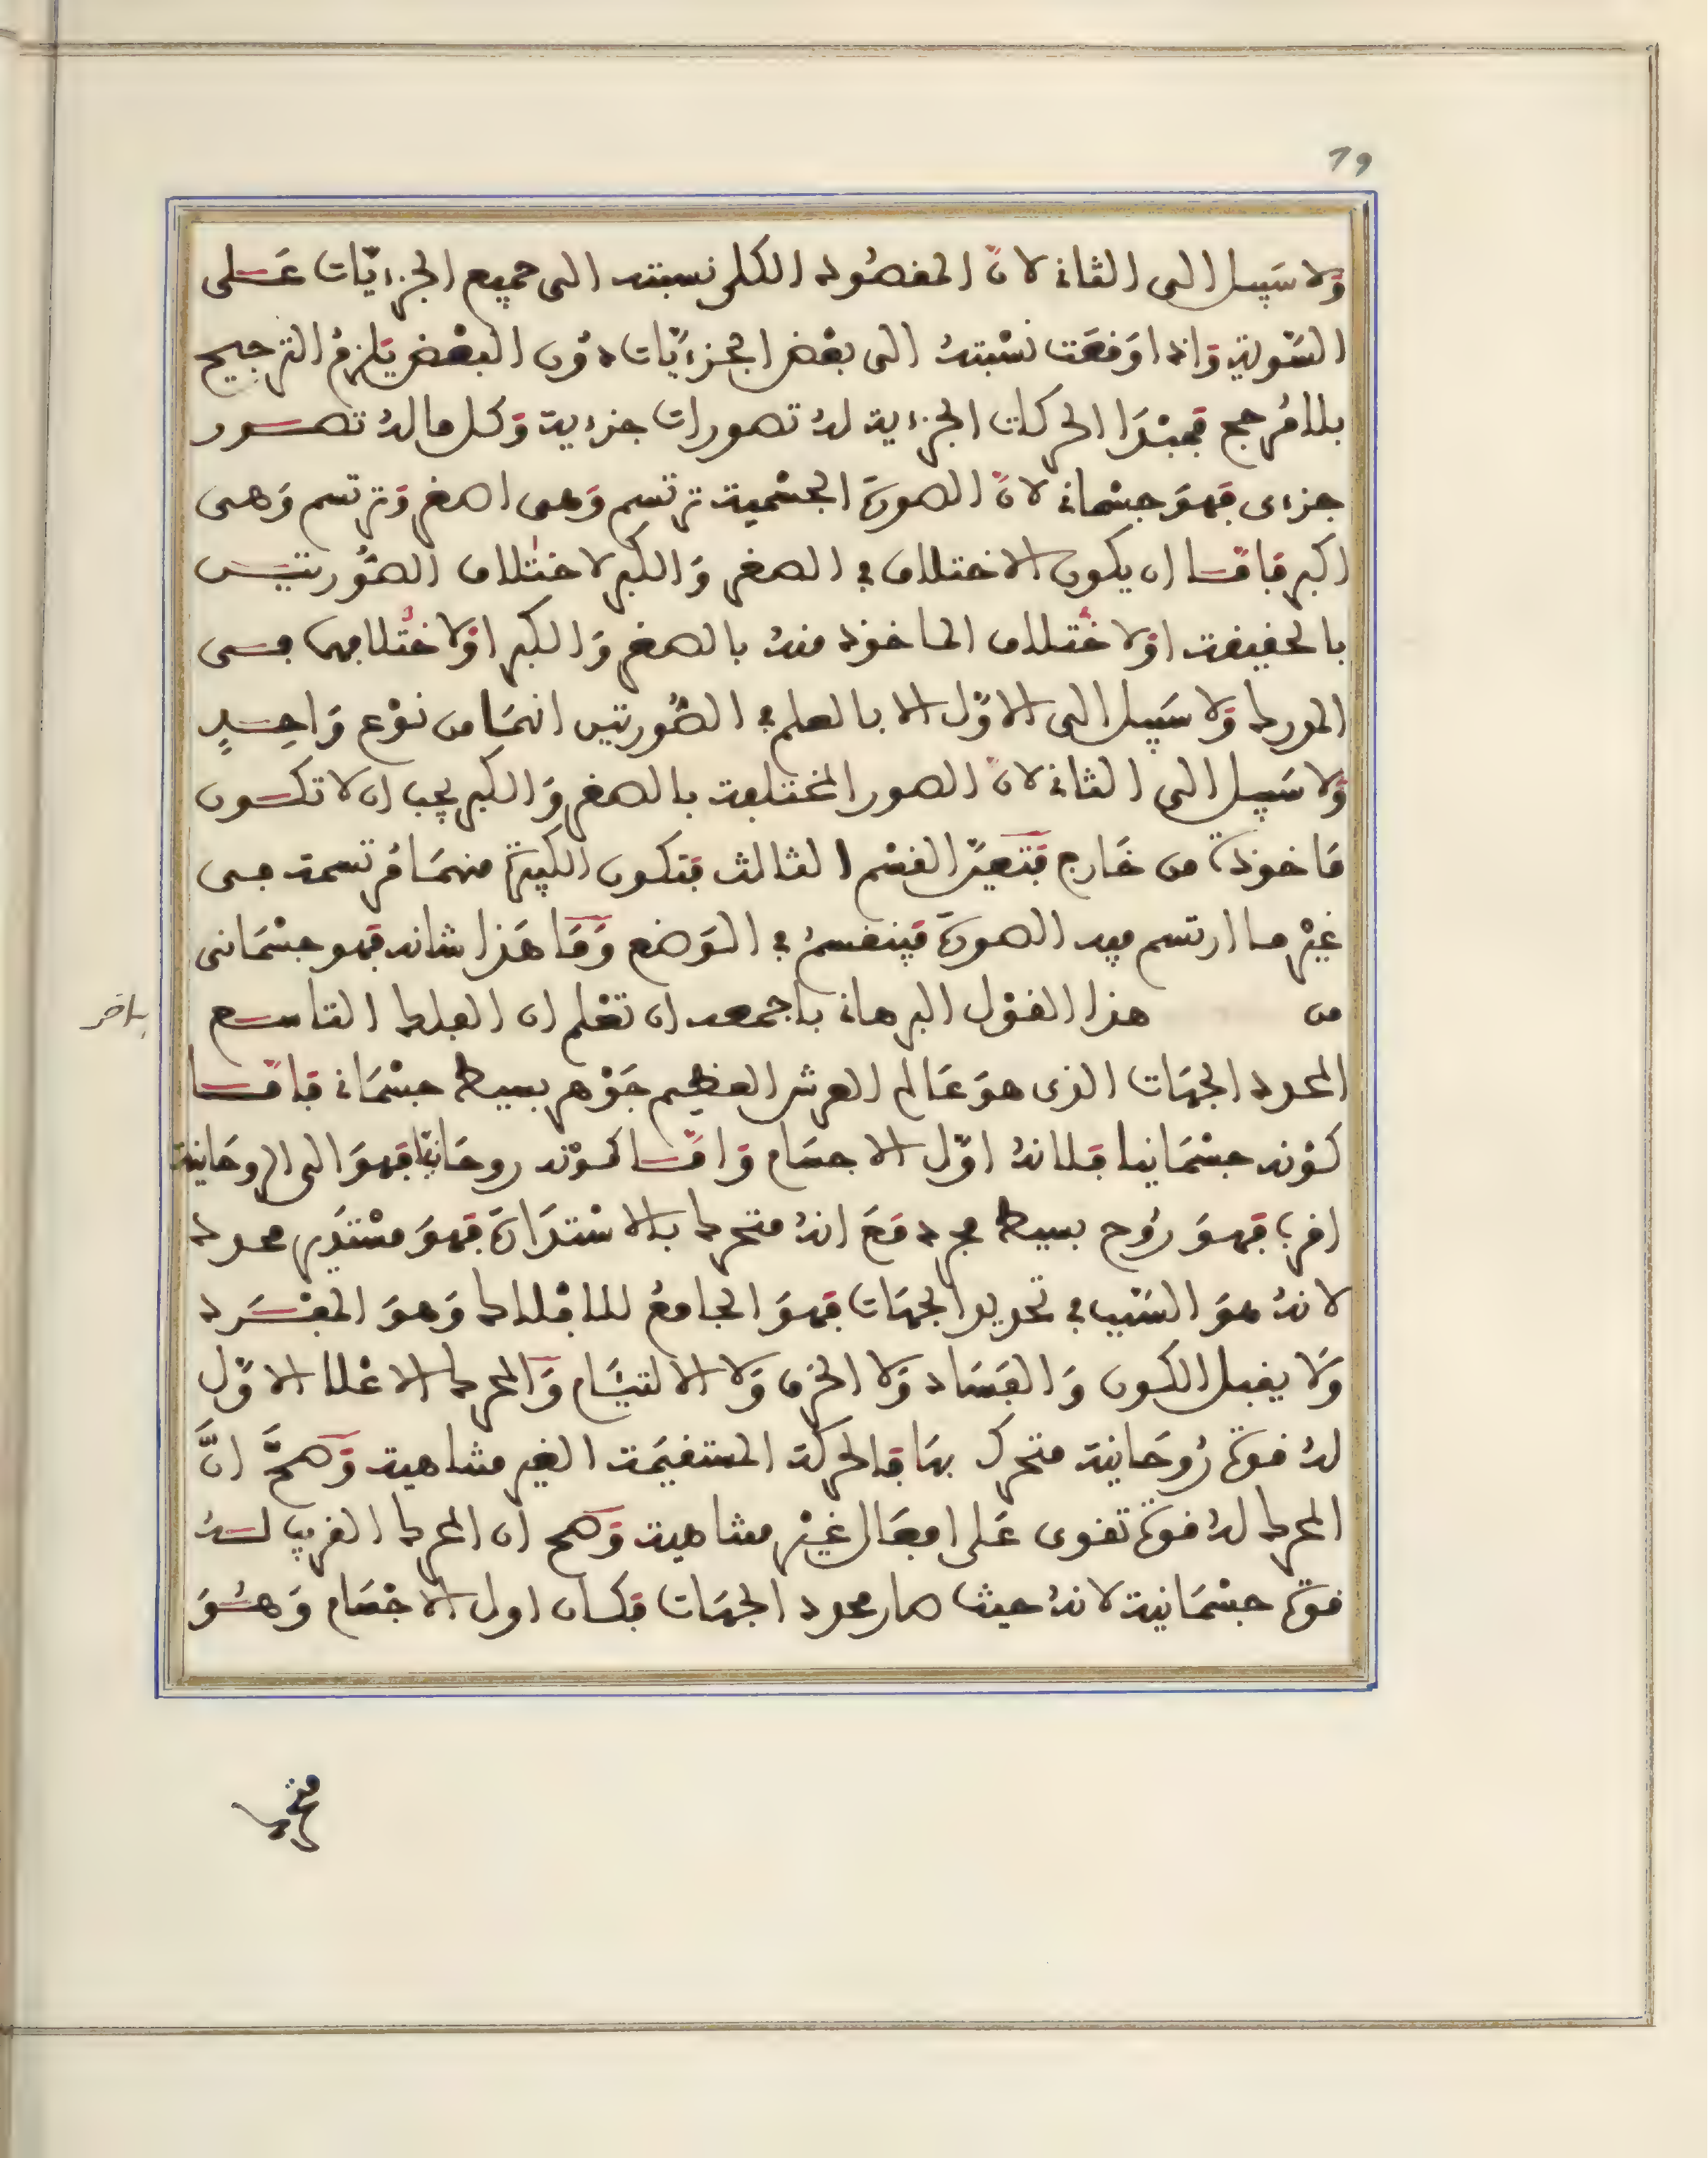 79
وَلا سَبيل الى الثاني لانّ المقصُود الكلي نسبته الى جميع الجزءيّات عَلى
السَّوية وَاذا وَقعَت نسْبتهُ الى بعْض الجزءيَّات دوُن البعْض يَلزمُ الترجيح
بلا مُرجح فمبْدَا الحركات الجزءية لهُ تصورات جزءية وَكل ما لهُ تصور
جزءى فهوَ جسْماني لانَّ الصورَة الجسْمية ترتسم وَهى اصغر وَترتسم وَهى
اكبر فامَّا ان يكون الاختلاف في الصغر وَالكبر لاختلاف الصُّورتيْن
بالحقيقة اوْ لاختلاف الماخوذ منهُ بالصغر وَالكبر اوْ لاختلافهما فى
المدرك وَلا سَبيل الى الاوَّل الا بالعلم في الصُّورتين انهمَا من نوْع وَاحِدٍ
وَلا سَبيل الى الثاني لانّ الصور المختلفة بالصغر وَالكبر يجب ان لا تكون
مَاخوذة من خَارج فتَعيَّن القسْم الثالث فتكون الكبيرَة منهمَا مُرتسمة فى
غيْر ما ارتسم فيه الصورَة فينقسمُ في الوَضع وَمَا هَذا شانه فهو جسْمَانى
من هذا القوْل البرهاني باجمعه ان تعْلم ان الفلك التاسع
بلاخر
المحدد الجهَات الذى هوَ عَالم العرش العظيم جَوْهر بسيط جسْمَاني فامَّا
كوْنه جسْمَانيا فلانهُ اوَّل الاجسَام وَامَّا كوْنه روحَانيّا فهوَ الى الروحَانية
اقرب فهوَ رُوح بسيط مجرد مَعَ انهُ متحرك بالاسْتدَارَة فهوَ مسْتدَير محدد
لانهُ هوَ السَّبب في تحديد الجهَات فهوَ الجامعُ للافْلاك وَهوَ المفْرَد
وَلا يقبل الكون وَالفَسَاد وَلا الخرق وَلا الالتيَام وَالمحرك الاعْلا الاوَّل
لهُ قوة رُوحَانية متحرك بهَا فالحركة المستقيمَة الغير متناهية وَصحَّ انَّ
المحرك لهُ قوة تقوى عَلى افعَال غيْر متناهية وَصح ان المحرك القريب لهُ
قوة جسْمَانية لانهُ حيث صار محدد الجهَات فكان اول الاجْسَام وَهُوَ